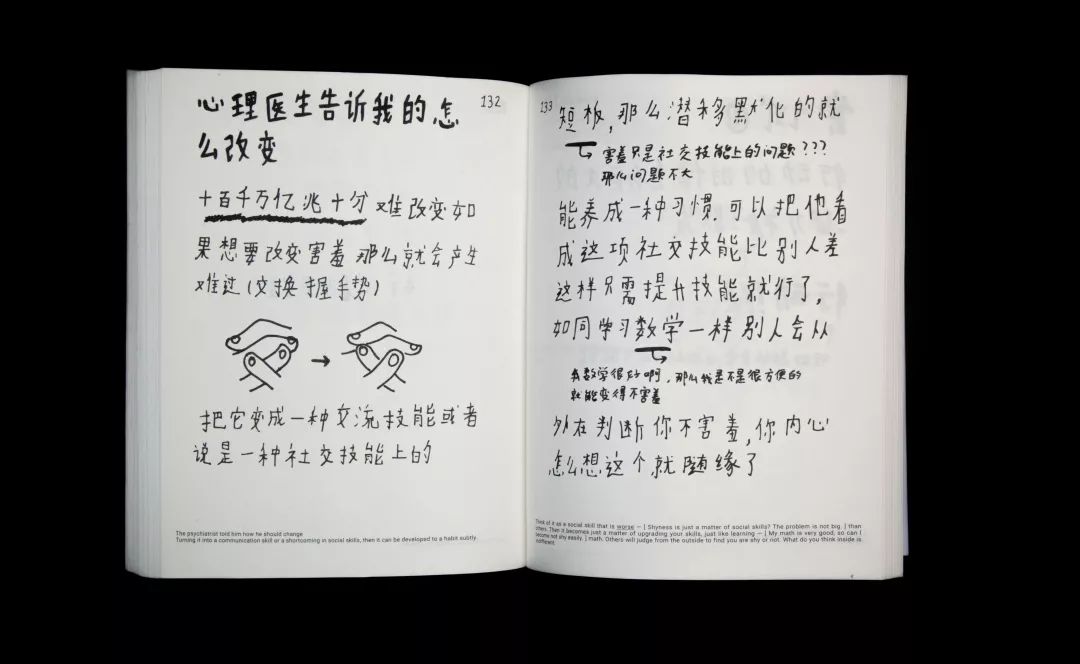 132
心理医生告诉我的,怎
么改变
十百千万亿兆十分难改变如
果想要改变害羞那么就会产生
难过(交换握手势)
把它变成一种交流技能或者
说是一种社交技能上的
The psychiatrist told him how he should change
Turning it into a communication skill or a shortcoming in social skills, then it can be developed to a habit subtly.
133
短板,那么潜移默化的就
害羞只是社交技能上的问题???
那么问题不大
能养成一种习惯.可以把他看
成这项社交技能比别人差
这样只需提升技能就行了,
如同学习数学一样别人会从
我数学很好啊,那么我是不是很方便的
就能变得不害羞
外在判断你不害羞,你内心
怎么想这个就随缘了
Think of it as a social skill that is worse — [ Shyness is just a matter of social skills? The problem is not big. ] than
others. Then it becomes just a matter of upgrading your skills, just like learning — [ My math is very good, so can I
become not shy easily. ] math. Others will judge from the outside to find you are shy or not. What do you think inside is
indifferent.